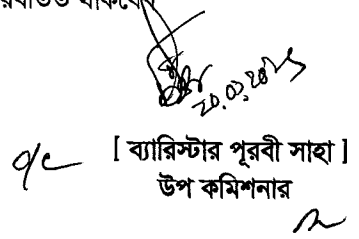 থাকবেন
20.03.2025
[ ব্যারিস্টার পূরবী সাহা ]
উপ কমিশনার